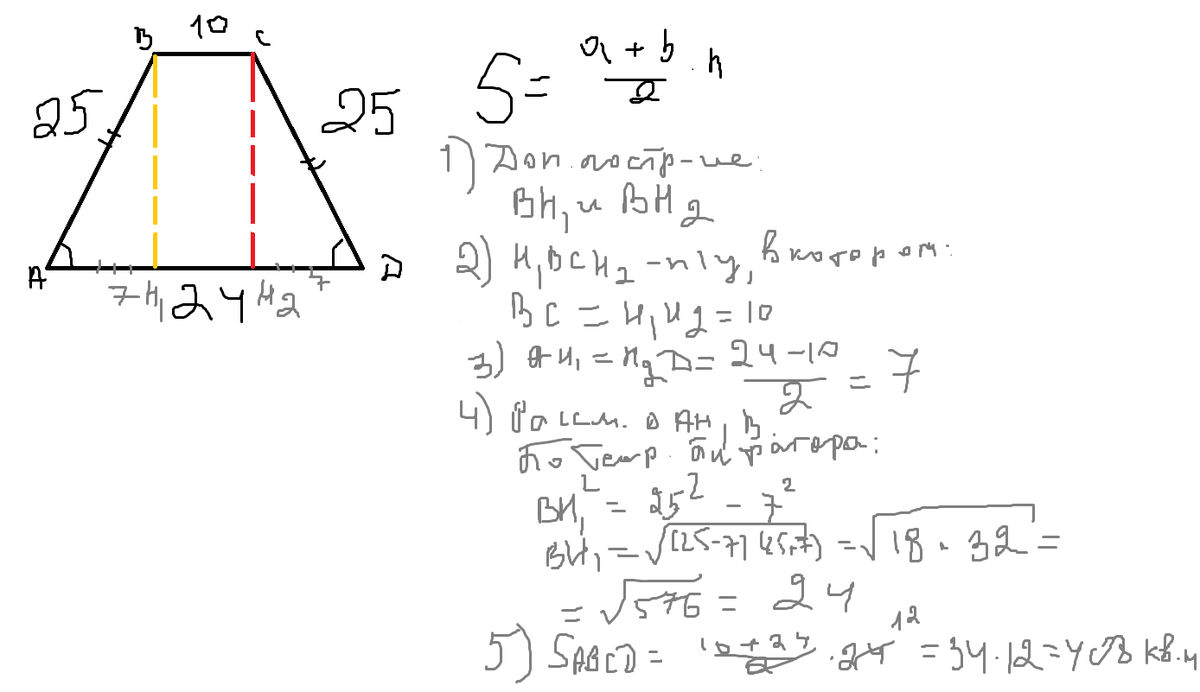 10
B C
25 25
A 7 H₁ 24 H₂ 7 D
S = (a + b)/2 · h
1) Доп. постр-ие:
BH₁ и BH₂
2) H₁BCH₂ - п/у, в котором:
BC = H₁H₂ = 10
3) AH₁ = H₂D = (24 - 10)/2 = 7
4) Рассм. △ AH₁B.
По теор. Пифагора:
BH₁² = 25² - 7²
BH₁ = √(25-7)(25+7) = √18 · 32 =
= √576 = 24
5) S ABCD = (10 + 24)/2 · 24 12 = 34 · 12 = 408 кв.м